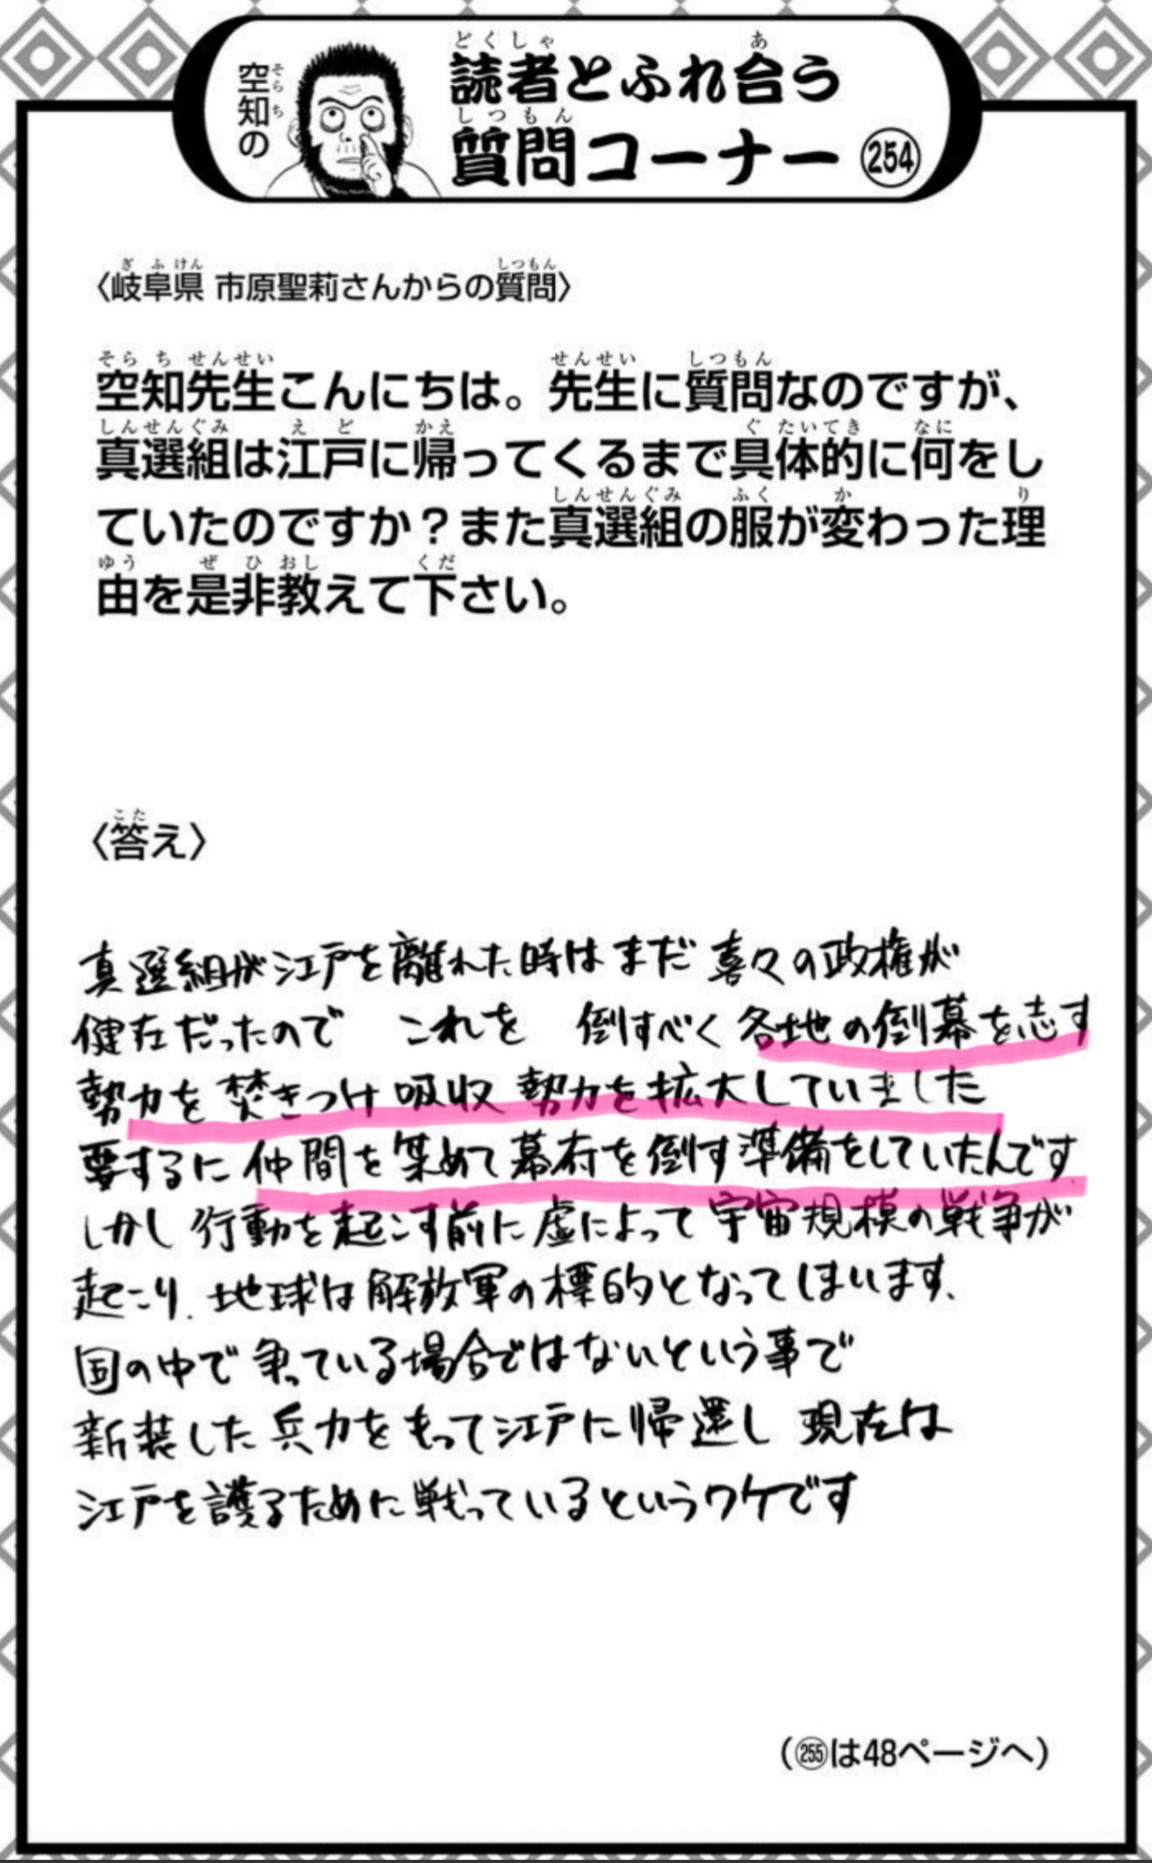 空知の
読者とふれ合う
質問コーナー 254
〈岐阜県 市原聖莉さんからの質問〉
空知先生こんにちは。先生に質問なのですが、
真選組は江戸に帰ってくるまで具体的に何をし
ていたのですか？また真選組の服が変わった理
由を是非教えて下さい。
〈答え〉
真選組が江戸を離れた時はまだ 喜々の政権が
健在だったので これを 倒すべく 各地の倒幕を志す
勢力を 焚きつけ 吸収 勢力を拡大していました
要するに 仲間を集めて幕府を倒す準備をしていたんです
しかし 行動を起こす前に 虚によって 宇宙規模の戦争が
起こり、地球は解放軍の標的となってしまいます、
国の中で 争っている場合ではないという事で
新装した 兵力をもって江戸に帰還し 現在は
江戸を護るために戦っているというワケです
(255は48ページへ)